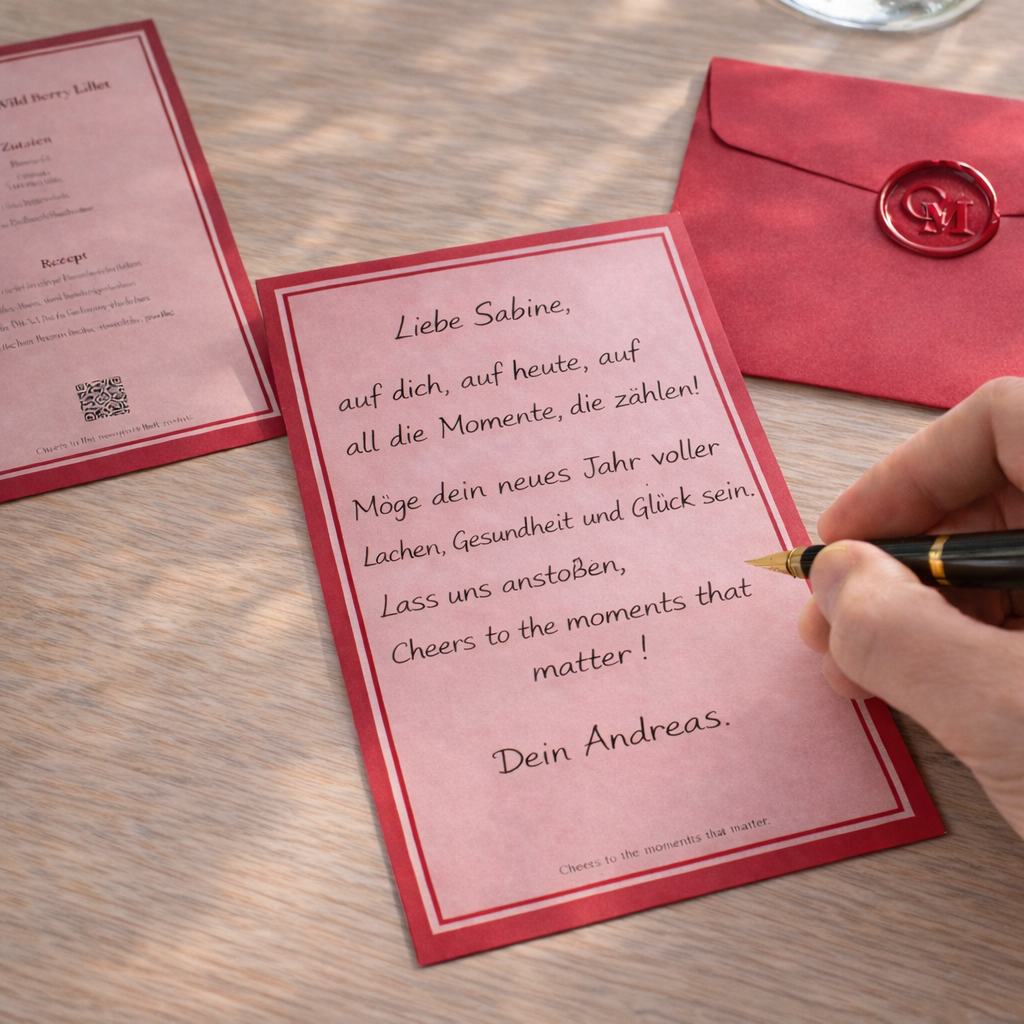 Wild Berry Lillet
Zutaten
Rezept
Liebe Sabine,
auf dich, auf heute, auf
all die Momente, die zählen!
Möge dein neues Jahr voller
Lachen, Gesundheit und Glück sein.
Lass uns anstoßen,
Cheers to the moments that
matter!
Dein Andreas.
Cheers to the moments that matter.
CM